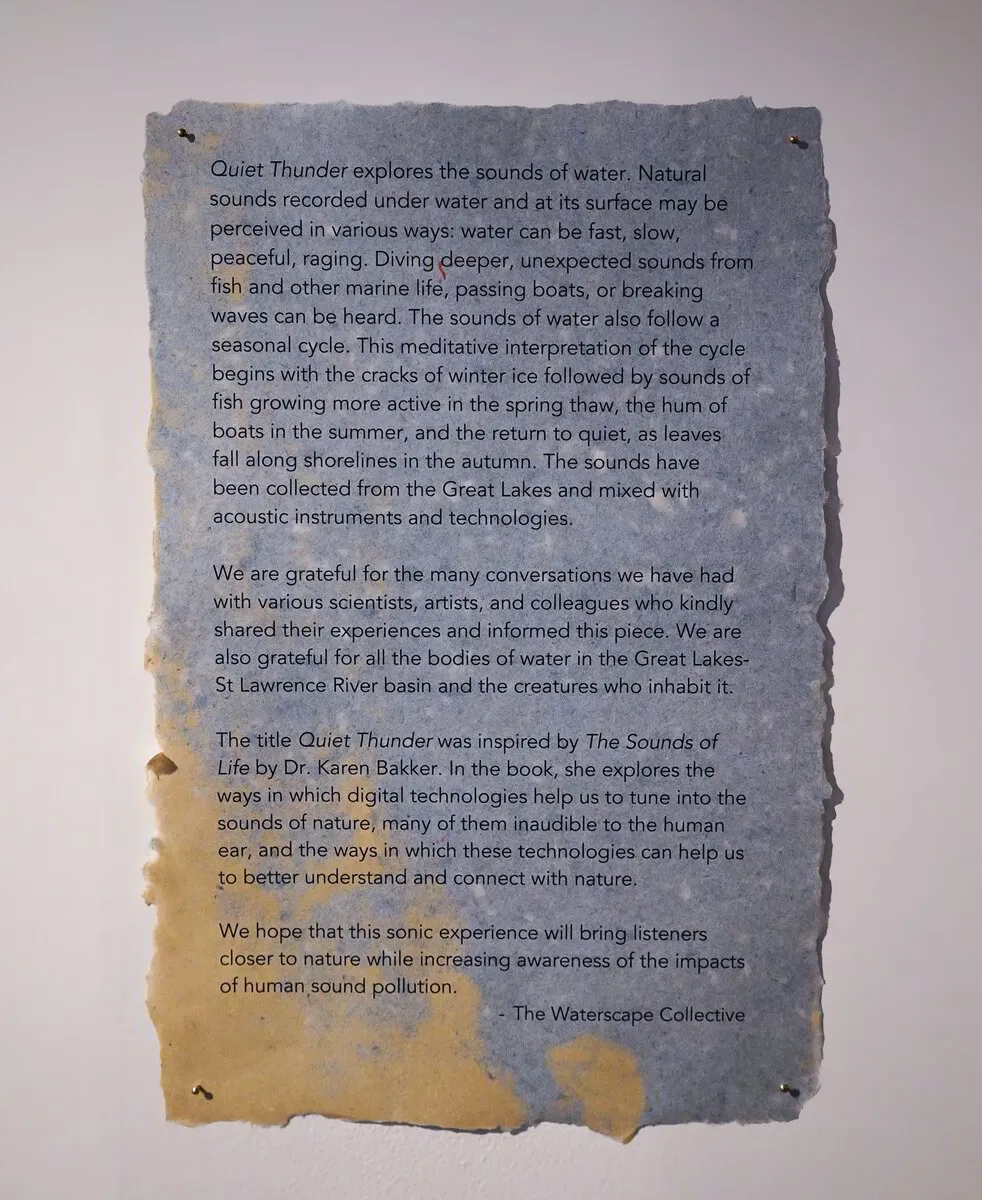 Quiet Thunder explores the sounds of water. Natural
sounds recorded under water and at its surface may be
perceived in various ways: water can be fast, slow,
peaceful, raging. Diving deeper, unexpected sounds from
fish and other marine life, passing boats, or breaking
waves can be heard. The sounds of water also follow a
seasonal cycle. This meditative interpretation of the cycle
begins with the cracks of winter ice followed by sounds of
fish growing more active in the spring thaw, the hum of
boats in the summer, and the return to quiet, as leaves
fall along shorelines in the autumn. The sounds have
been collected from the Great Lakes and mixed with
acoustic instruments and technologies.
We are grateful for the many conversations we have had
with various scientists, artists, and colleagues who kindly
shared their experiences and informed this piece. We are
also grateful for all the bodies of water in the Great Lakes-
St Lawrence River basin and the creatures who inhabit it.
The title Quiet Thunder was inspired by The Sounds of
Life by Dr. Karen Bakker. In the book, she explores the
ways in which digital technologies help us to tune into the
sounds of nature, many of them inaudible to the human
ear, and the ways in which these technologies can help us
to better understand and connect with nature.
We hope that this sonic experience will bring listeners
closer to nature while increasing awareness of the impacts
of human sound pollution.
- The Waterscape Collective